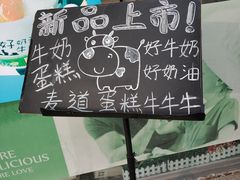 新品上市!
牛奶 好牛奶
蛋糕 好奶油
麦道 蛋糕牛牛牛
好奶
RE
LICIOUS
RE LOVE